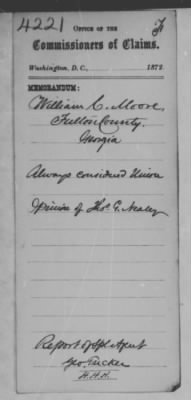 4221
OFFICE OF THE
Commissioners of Claims.
Washington, D. C., 1872.
MEMORANDUM:
William C. Moore,
Fulton County.
Georgia
Always considered Union
of Thos. G. Healey
Report of Spl Agent
Geo. Tucker
H.H.H.